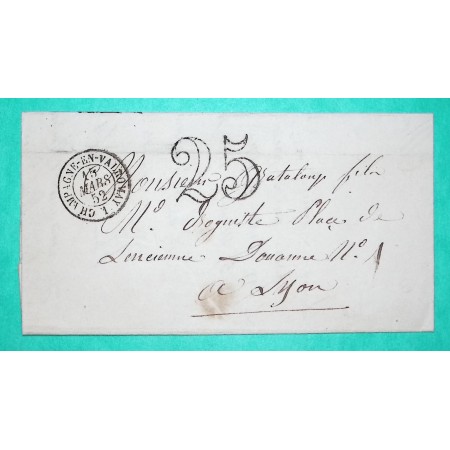 CHAMPAGNE-EN-VALROMAY
15
MARS
52
25
Monsieur Bataloup fils
Md Drogviste Place de
Lencienne Douanne No 1
a Lyon